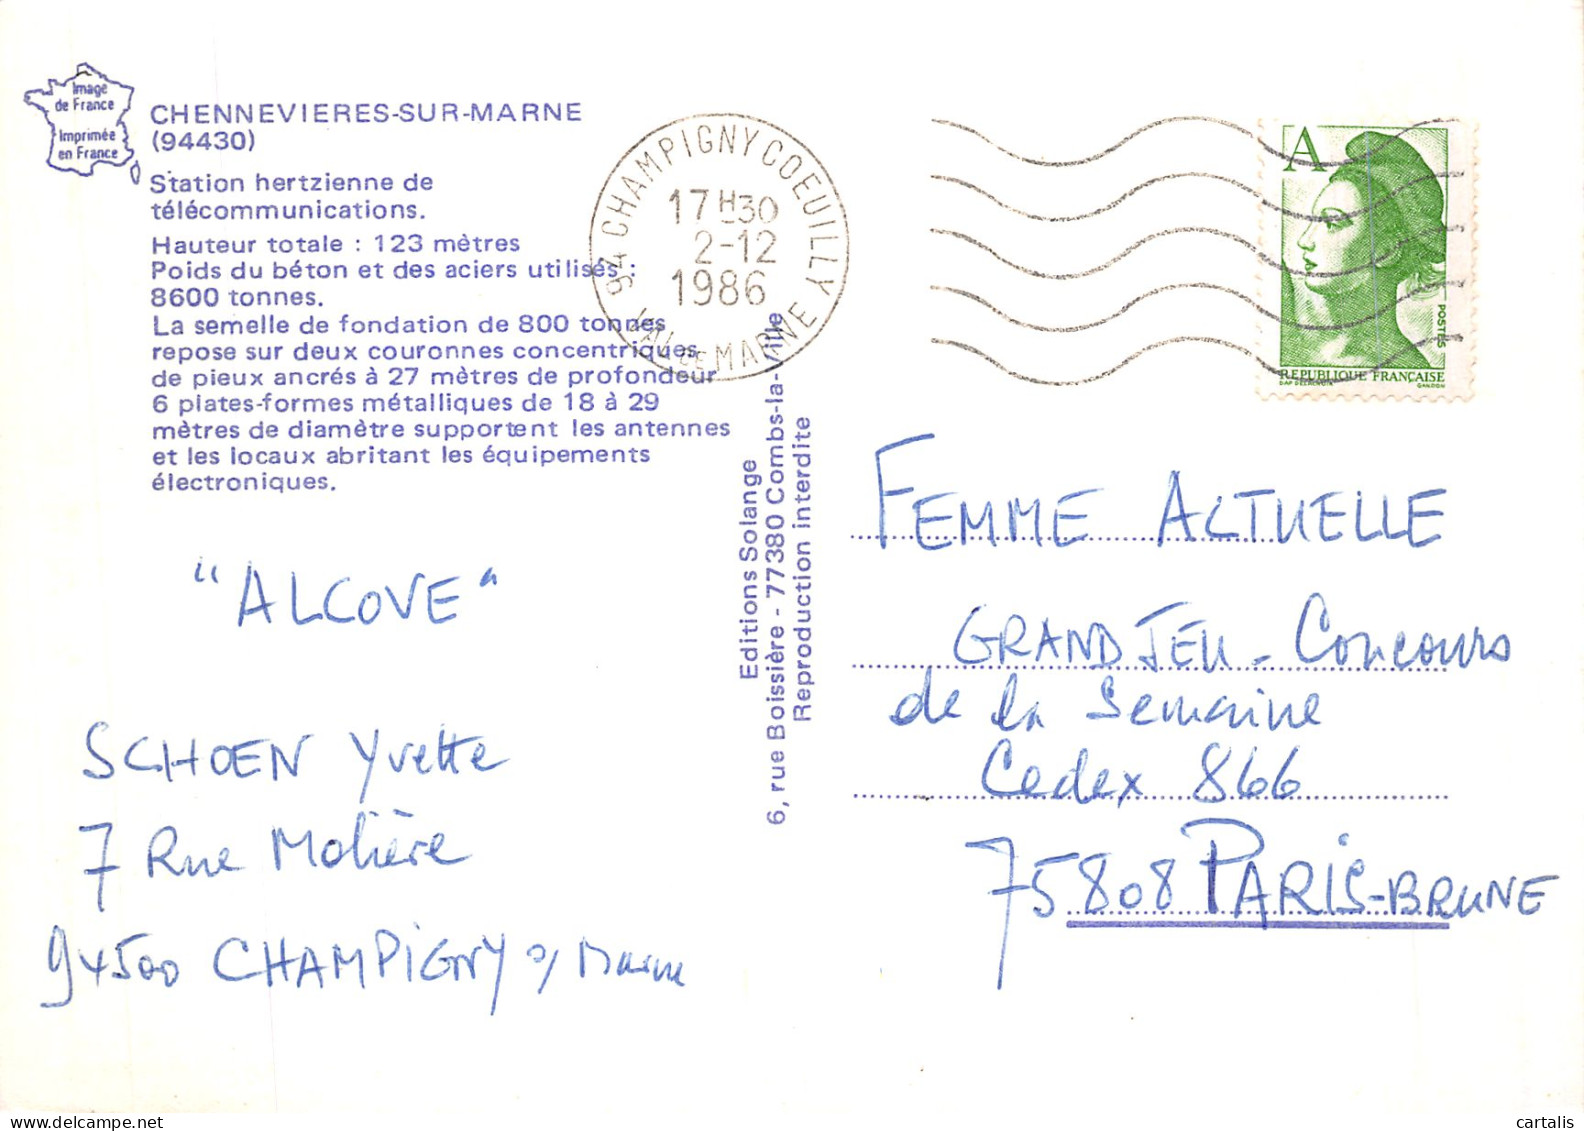 Image
de France
Imprimée
en France
CHENNEVIERES-SUR-MARNE
(94430)
Station hertzienne de
télécommunications.
Hauteur totale : 123 mètres
Poids du béton et des aciers utilisés :
8600 tonnes.
La semelle de fondation de 800 tonnes
repose sur deux couronnes concentriques
de pieux ancrés à 27 mètres de profondeur
6 plates-formes métalliques de 18 à 29
mètres de diamètre supportent les antennes
et les locaux abritant les équipements
électroniques.
"ALCOVE"
SCHOEN Yvette
7 Rue Molière
94500 CHAMPIGNY s/ Marne
Editions Solange
6, rue Boissière - 77380 Combs-la-Ville
Reproduction interdite
94 CHAMPIGNY COEUILLY
17 H30
2-12
1986
VAL DE MARNE
A
POSTES
REPUBLIQUE FRANÇAISE
GANDON
FEMME ACTUELLE
GRAND JEU - Concours
de la Semaine
Cedex 866
75808 PARIS-BRUNE
cartalis